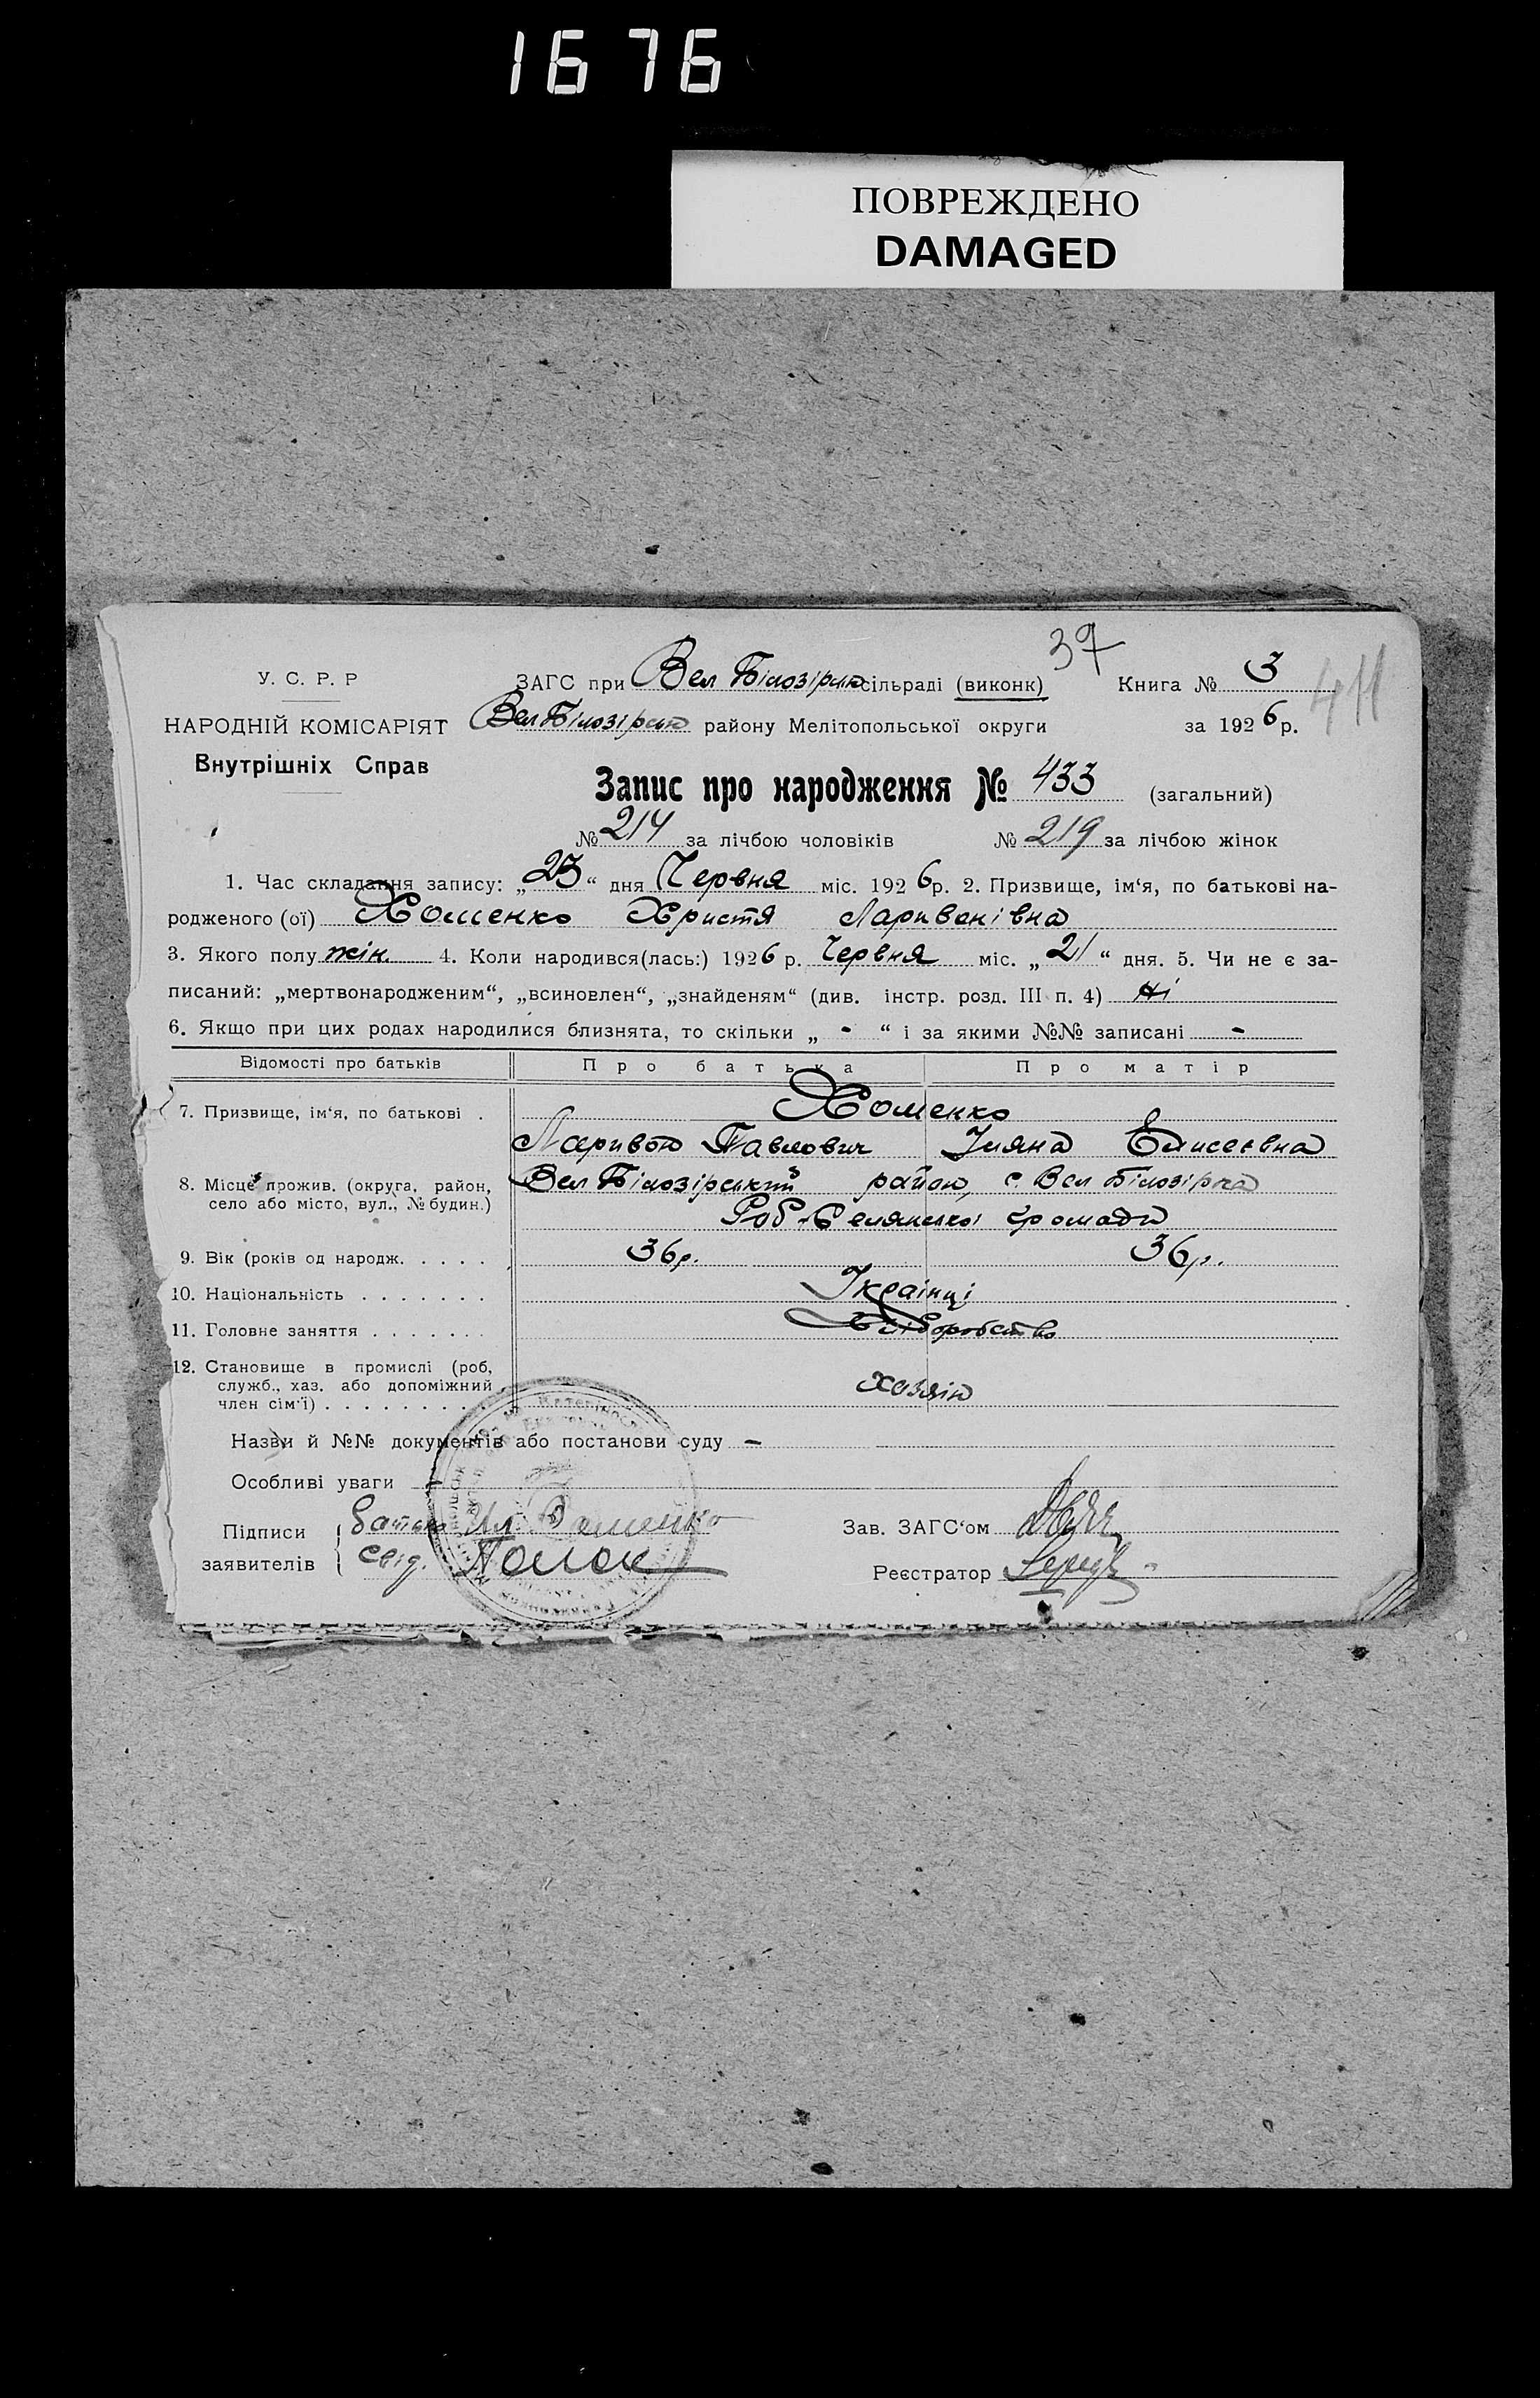 1676
ПОВРЕЖДЕНО
DAMAGED
37
У. С. Р. Р
ЗАГС при Вел Білозірск сільраді (виконк) Книга № 3
411
НАРОДНІЙ КОМІСАРІЯТ
Вел Білозірск району Мелітопольської округи за 1926 р.
Внутрішніх Справ
Запис про народження № 433 (загальний)
№ 214 за лічбою чоловіків № 219 за лічбою жінок
1. Час складання запису: „23“ дня Червня міс. 1926 р. 2. Призвище, ім‘я, по батькові на-
родженого (ої) Хоменко Христя Ларивонівна
3. Якого полу жін. 4. Коли народився(лась:) 1926 р. Червня міс. „21“ дня. 5. Чи не є за-
писаний: „мертвонародженим“, „всиновлен“, „знайденям“ (див. інстр. розд. III п. 4) Ні
6. Якщо при цих родах народилися близнята, то скільки „ - “ і за якими №№ записані -
Відомості про батьків Про батька Про матір
7. Призвище, ім‘я, по батькові . Хоменко
Ларивон Павлович Уляна Елисеєвна
8. Місце прожив. (округа, район, Вел Білозірський район, с. Вел Білозірка
село або місто, вул., № будин.)
Роб-Селянської громади
9. Вік (років од народж. . . . . 36 р. 36 р.
10. Національність . . . . . . . Українці
11. Головне заняття . . . . . . . Хліборобство
12. Становище в промислі (роб, служб., хаз. або допоміжний член сім‘ї) . . . . . . . . . хазяїн
Назви й №№ документів або постанови суду -
Особливі уваги -
Підписи заявителів { батько
свід.
Зав. ЗАГС‘ом
Реєстратор